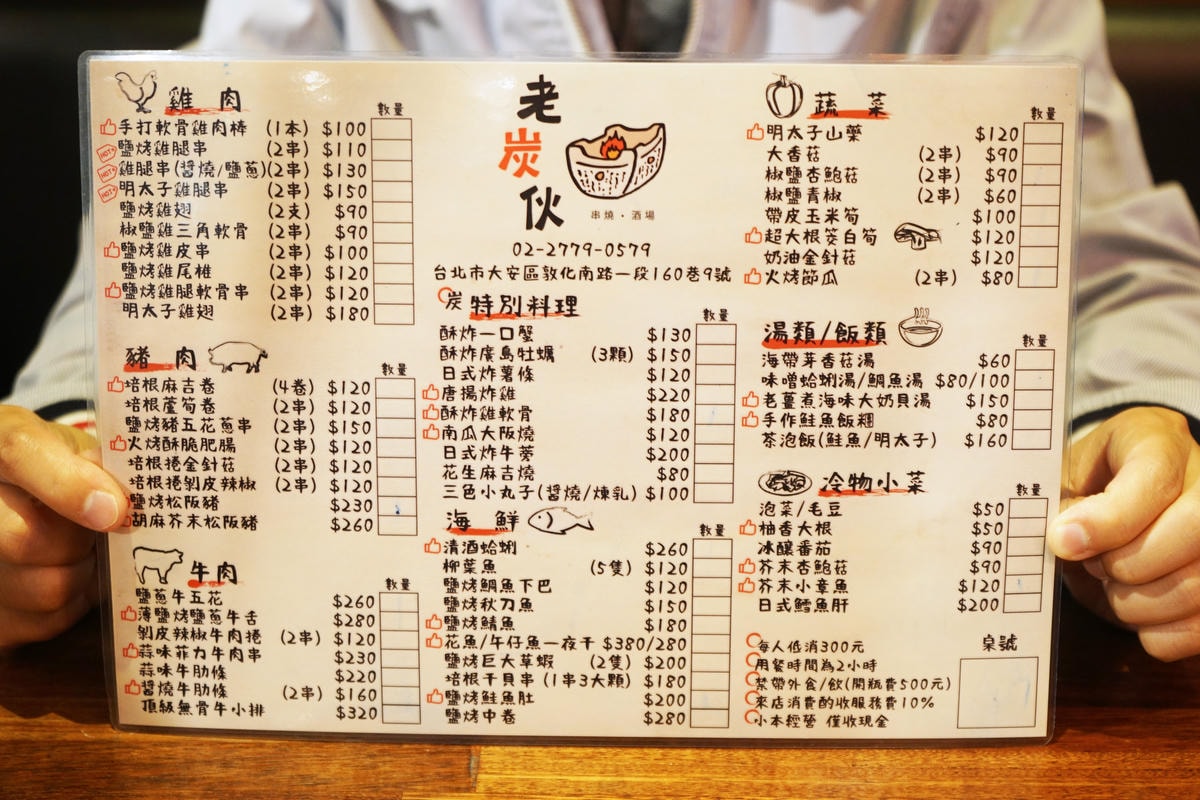 雞 肉
數量
手打軟骨雞肉棒 (1本) $100
HOT! 鹽烤雞腿串 (2串) $110
HOT! 雞腿串(醬燒/鹽蔥)(2串) $130
HOT! 明太子雞腿串 (2串) $150
鹽烤雞翅 (2支) $90
椒鹽雞三角軟骨 (2串) $90
鹽烤雞皮串 (2串) $100
鹽烤雞尾椎 (2串) $120
鹽烤雞腿軟骨串 (2串) $120
明太子雞翅 (2串) $180
豬 肉
數量
培根麻吉卷 (4卷) $120
培根蘆筍卷 (2串) $120
鹽烤豬五花蔥串 (2串) $150
火烤酥脆肥腸 (2串) $120
培根捲金針菇 (2串) $120
培根捲剝皮辣椒 (2串) $120
鹽烤松阪豬 $230
胡麻芥末松阪豬 $260
牛肉
數量
鹽蔥牛五花 $260
薄鹽烤鹽蔥牛舌 $280
剝皮辣椒牛肉捲 (2串) $120
蒜味菲力牛肉串 $230
蒜味牛肋條 $220
醬燒牛肋條 (2串) $160
頂級無骨牛小排 $320
老
炭
伙
串燒・酒場
02-2779-0579
台北市大安區敦化南路一段160巷9號
炭 特別料理
數量
酥炸一口蟹 $130
酥炸廣島牡蠣 (3顆) $150
日式炸薯條 $120
唐揚炸雞 $220
酥炸雞軟骨 $180
南瓜大阪燒 $120
日式炸牛蒡 $200
花生麻吉燒 $80
三色小丸子(醬燒/煉乳) $100
海 鮮
數量
清酒蛤蜊 $260
柳葉魚 (5隻) $120
鹽烤鯛魚下巴 $120
鹽烤秋刀魚 $150
鹽烤鯖魚 $180
花魚/午仔魚一夜干 $380/280
鹽烤巨大草蝦 (2隻) $200
培根干貝串 (1串3大顆) $180
鹽烤鮭魚肚 $200
鹽烤中卷 $280
蔬 菜
數量
明太子山藥 $120
大香菇 (2串) $90
椒鹽杏鮑菇 (2串) $90
椒鹽青椒 (2串) $60
帶皮玉米筍 $100
超大根筊白筍 $120
奶油金針菇 $120
火烤節瓜 (2串) $80
湯類/飯類
數量
海帶芽香菇湯 $60
味噌蛤蜊湯/鯛魚湯 $80/100
老薑煮海味大奶貝湯 $150
手作鮭魚飯糰 $80
茶泡飯(鮭魚/明太子) $160
冷物小菜
數量
泡菜/毛豆 $50
柚香大根 $50
冰釀番茄 $90
芥末杏鮑菇 $90
芥末小章魚 $120
日式鱈魚肝 $200
每人低消300元
用餐時間為2小時
禁帶外食/飲(開瓶費500元)
來店消費酌收服務費10%
小本經營 僅收現金
桌號